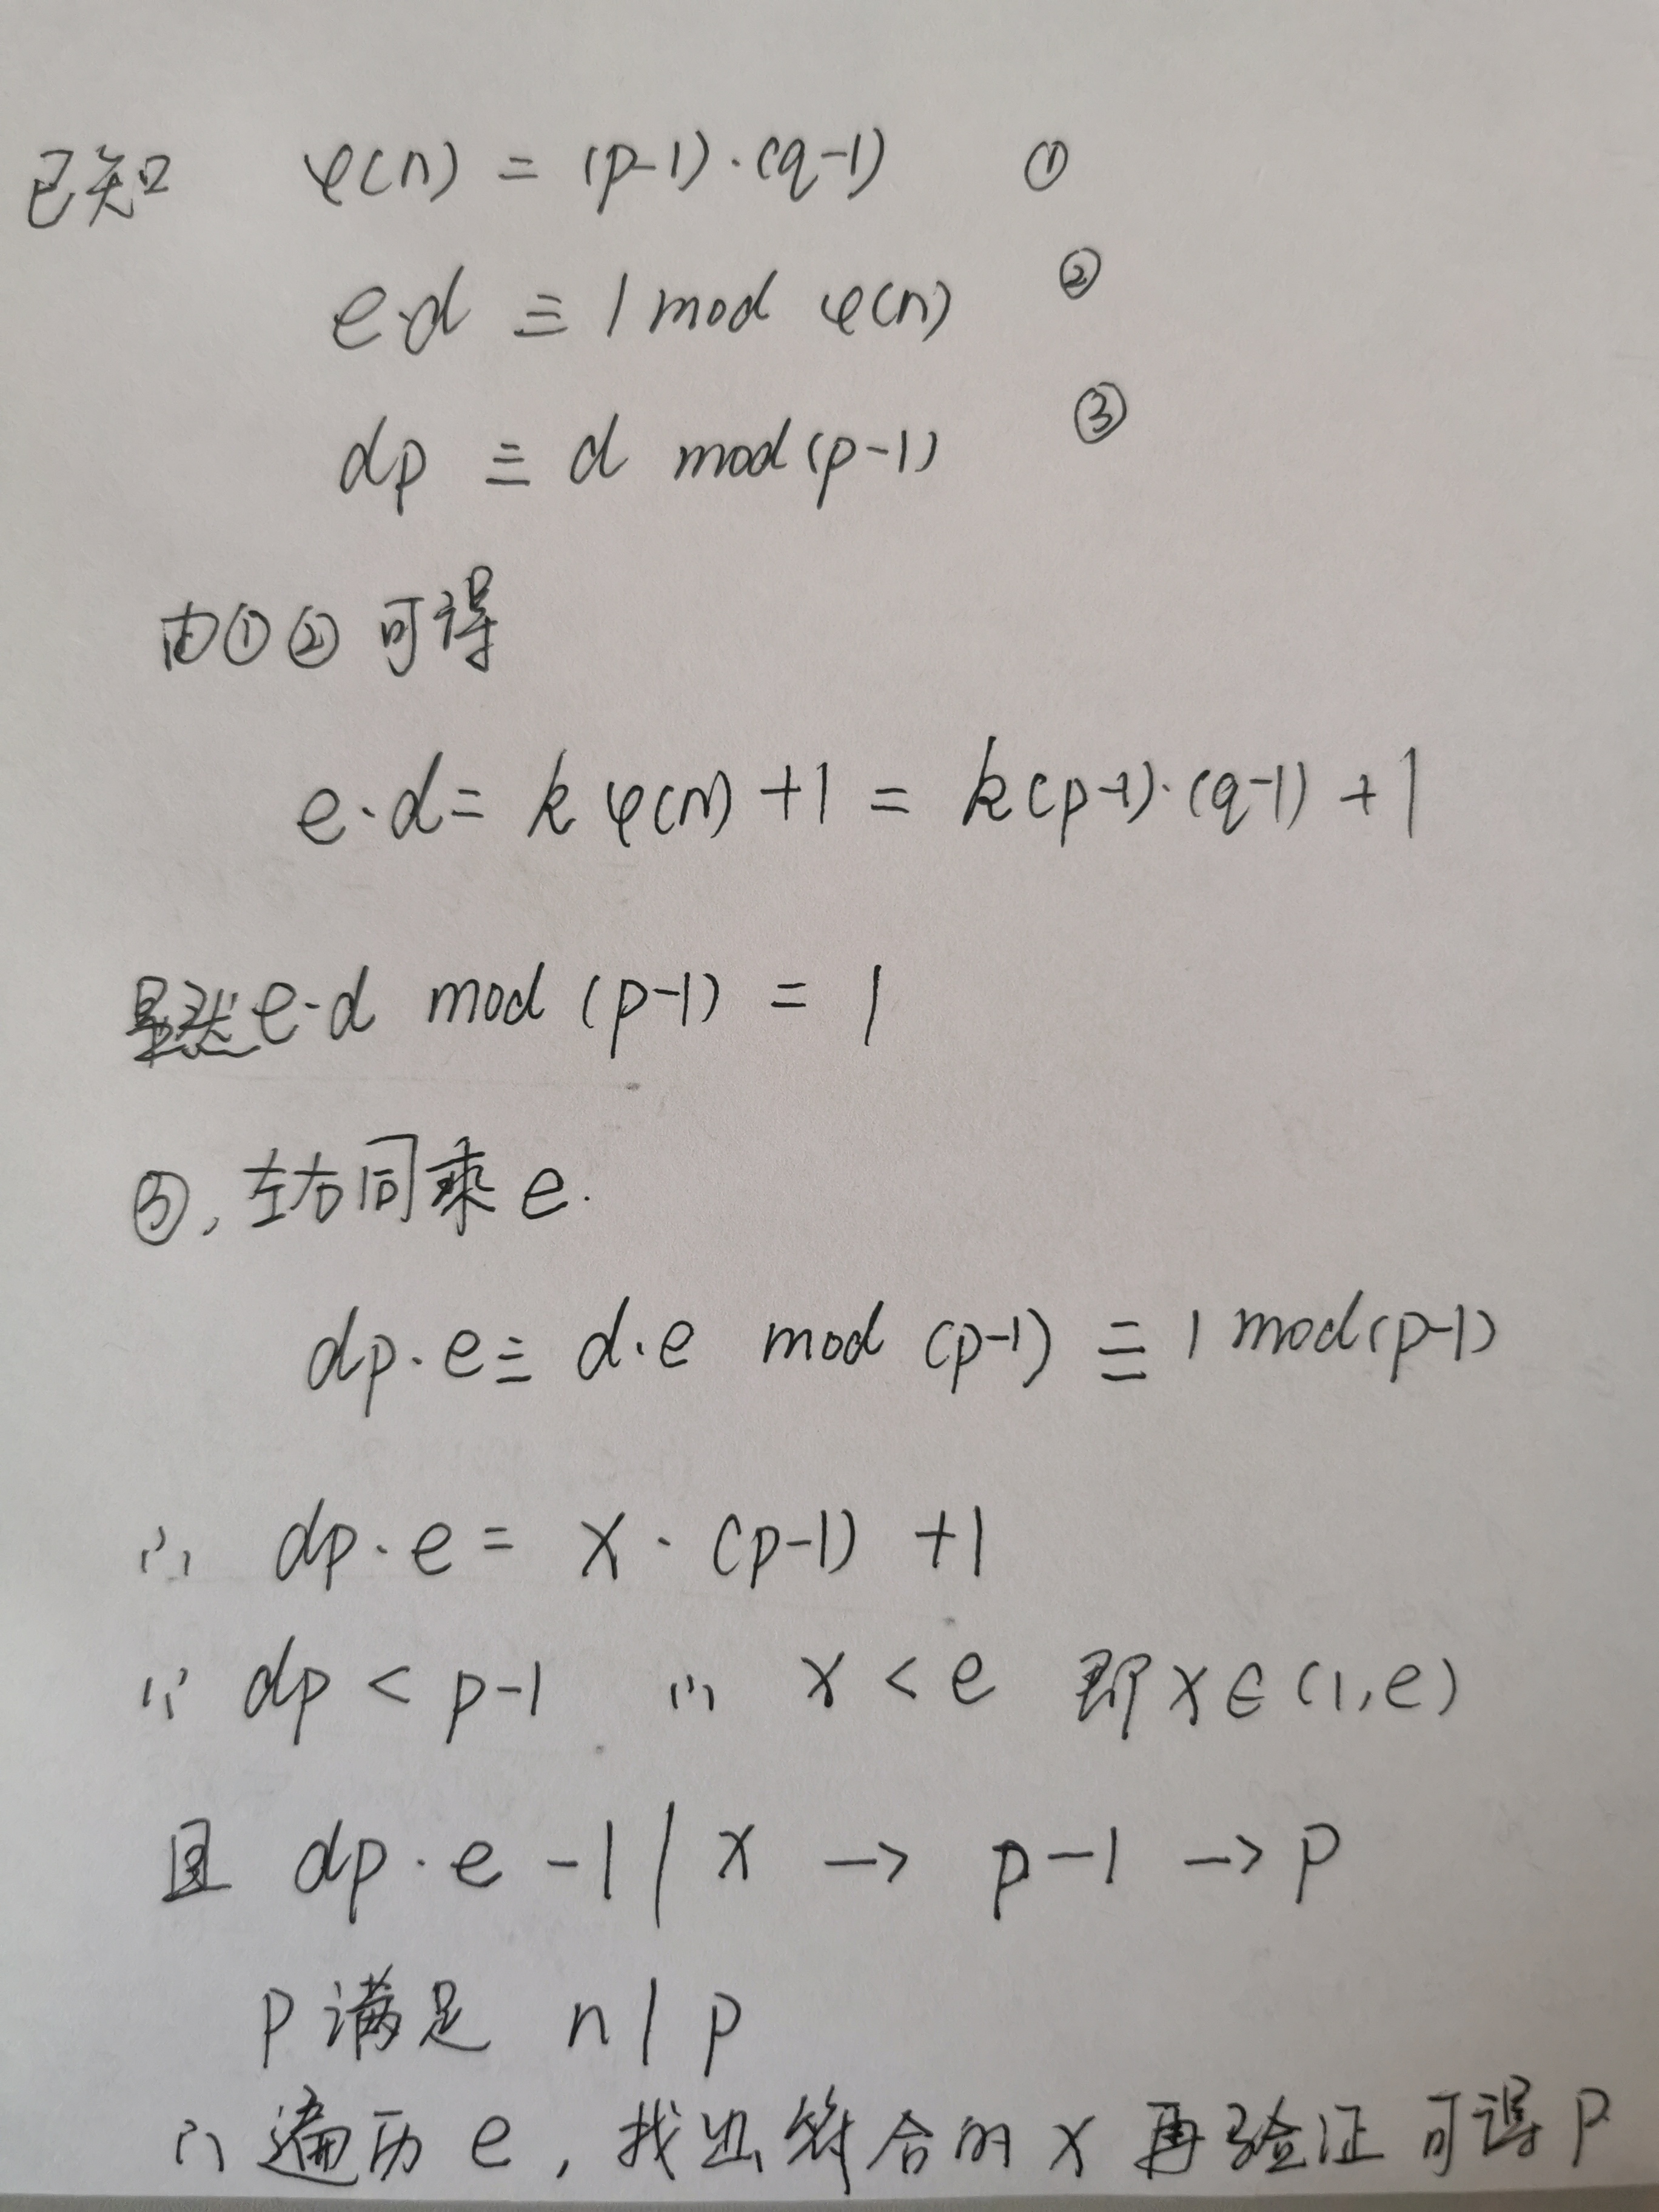 已知 φ(n) = (p-1)·(q-1) ①
e·d ≡ 1 mod φ(n) ②
dp ≡ d mod(p-1) ③
由①②可得
e·d = kφ(n) +1 = k(p-1)·(q-1) +1
显然 e·d mod (p-1) = 1
③, 左右同乘 e.
dp·e ≡ d·e mod (p-1) ≡ 1 mod(p-1)
∴ dp·e = x·(p-1) +1
∵ dp < p-1 ∴ x < e 即 x∈(1,e)
且 dp·e -1 | x → p-1 → p
p满足 n | p
∴ 遍历 e, 找出符合的 x 再验证可得 p